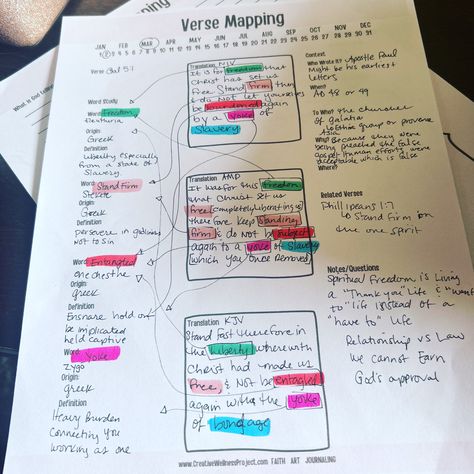 Verse Mapping
JAN FEB MAR APR MAY JUN JUL AUG SEP OCT NOV DEC
1 2 3 4 5 6 7 8 9 10 11 12 13 14 15 16 17 18 19 20 21 22 23 24 25 26 27 28 29 30 31
Verse: Gal 5:1
Word Study
Word: Freedom
Eleutheria
Origin:
Greek
Definition
Liberty especially
from a state of
Slavery
Word: Stand Firm
Stekete
Origin:
Greek
Definition
persevere in godliness
not to sin
Word: Entangled
enechesthe
Origin:
Greek
Definition
Ensnare hold on
be implicated
held captive
Word: Yoke
zygo
Origin:
Greek
Definition
Heavy Burden
Connecting you
working as one
Translation NIV
It is for freedom that
Christ has set us
free Stand firm then
& do not let yourselves
be burdened again
by a yoke of
Slavery
Translation AMP
It was for this freedom
that Christ set us
free [completely liberating us]
therefore keep standing
firm & do not be subject
again to a yoke of Slavery
[which you once removed]
Translation KJV
Stand fast therefore in
the liberty wherewith
Christ had made us
free & not be entangled
again with the yoke
of bondage
Context
Who Wrote it? Apostle Paul
Might be his earliest
Letters
When?
AD 48 or 49
To Who? the churches
of galatia
Why? Because they were
being preached the false
gospel human efforts were
acceptable which is false
Where?
Related Verses
Phillipians 1:27
Stand firm on
the one spirit
Notes/Questions
Spiritual Freedom is Living
a "Thank you" life & "want
to" life instead of a
"have to" life
Relationship vs Law
we cannot Earn
God's approval
www.CreativeWellnessProject.com FAITH ART JOURNALING